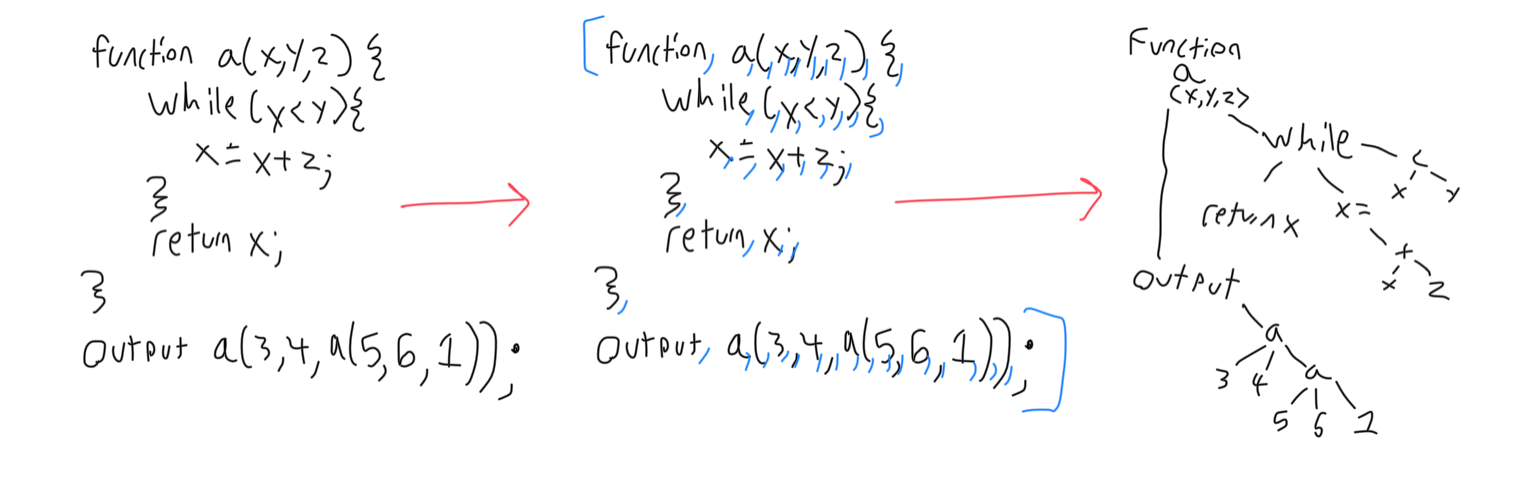 function a(x,y,z) {
while (x<y){
x = x+z;
}
return x;
}
output a(3,4,a(5,6,1));
[function, a,(,x,,,y,,,z,),{,
while,(,x,<,y,),{,
x,=,x,+,z,;,
},
return,x,;,
},
output,a,(,3,,,4,,,a,(,5,,,6,,,1,),),;]
Function
a
(x,y,z)
while
<
x y
return x
x=
+
x z
output
a
3 4 a
5 6 1